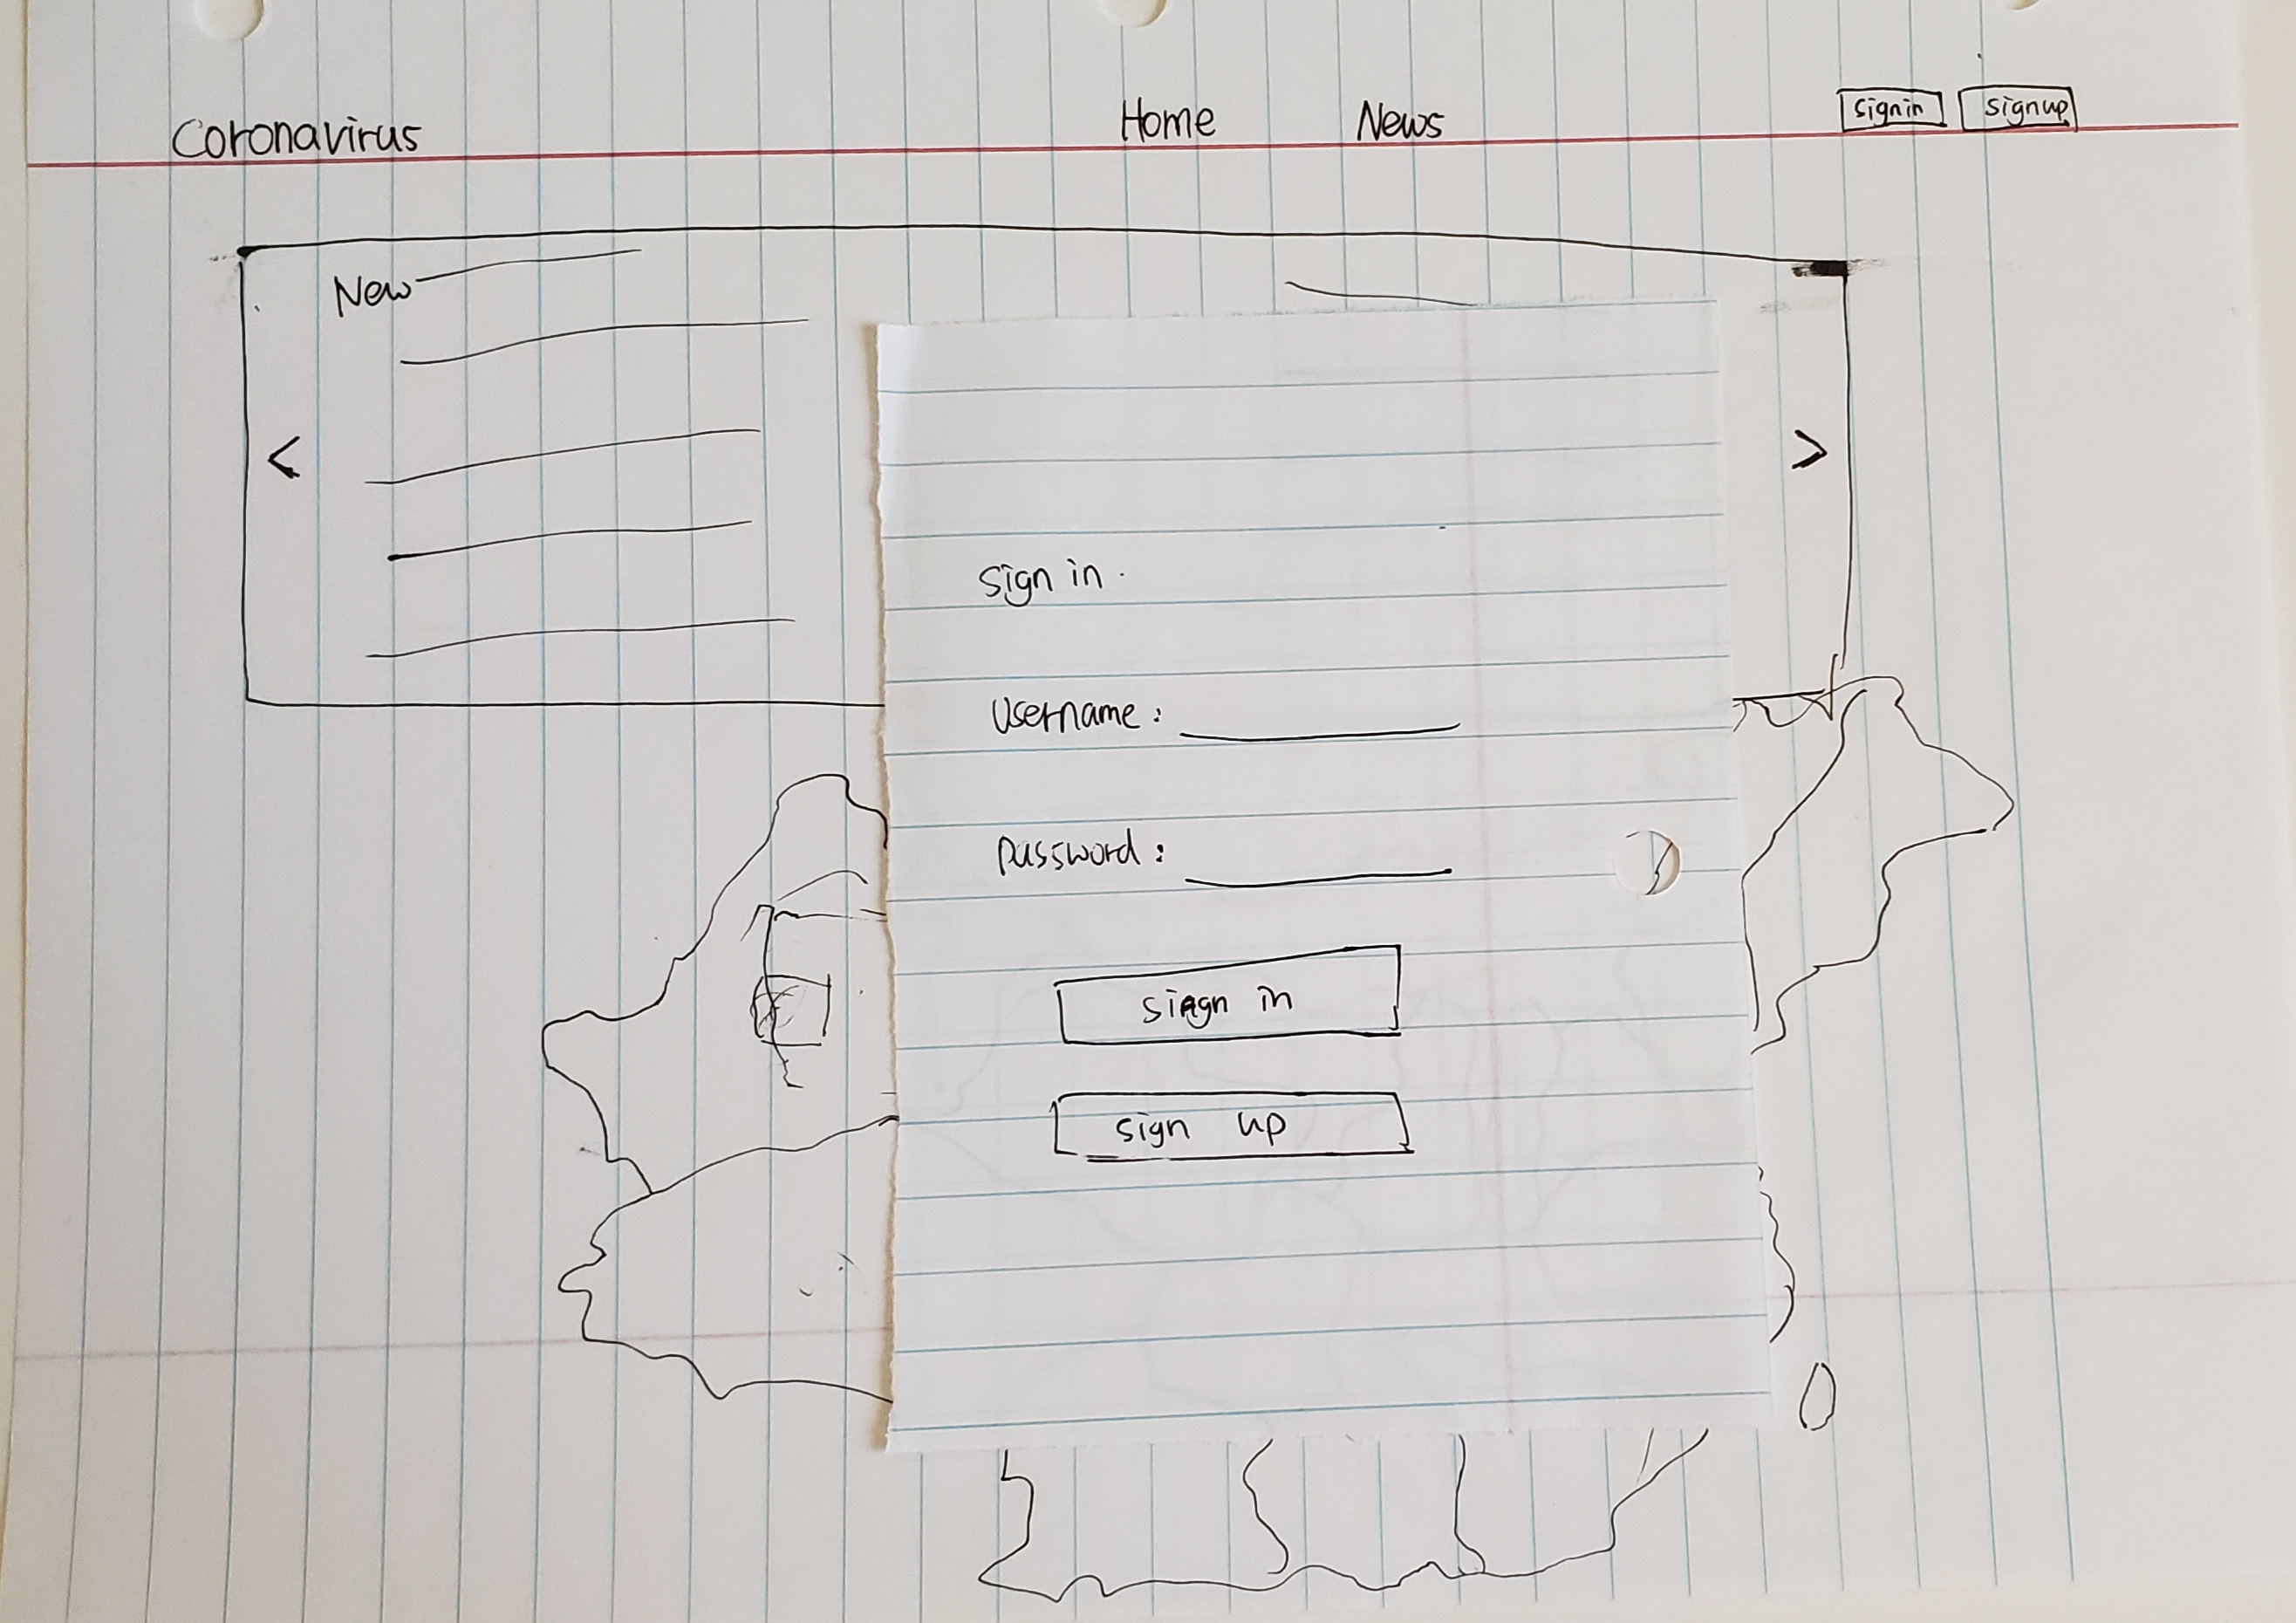 Coronavirus Home News Signin Signup
New
<
>
Sign in.
Username:
Password:
sign in
sign up